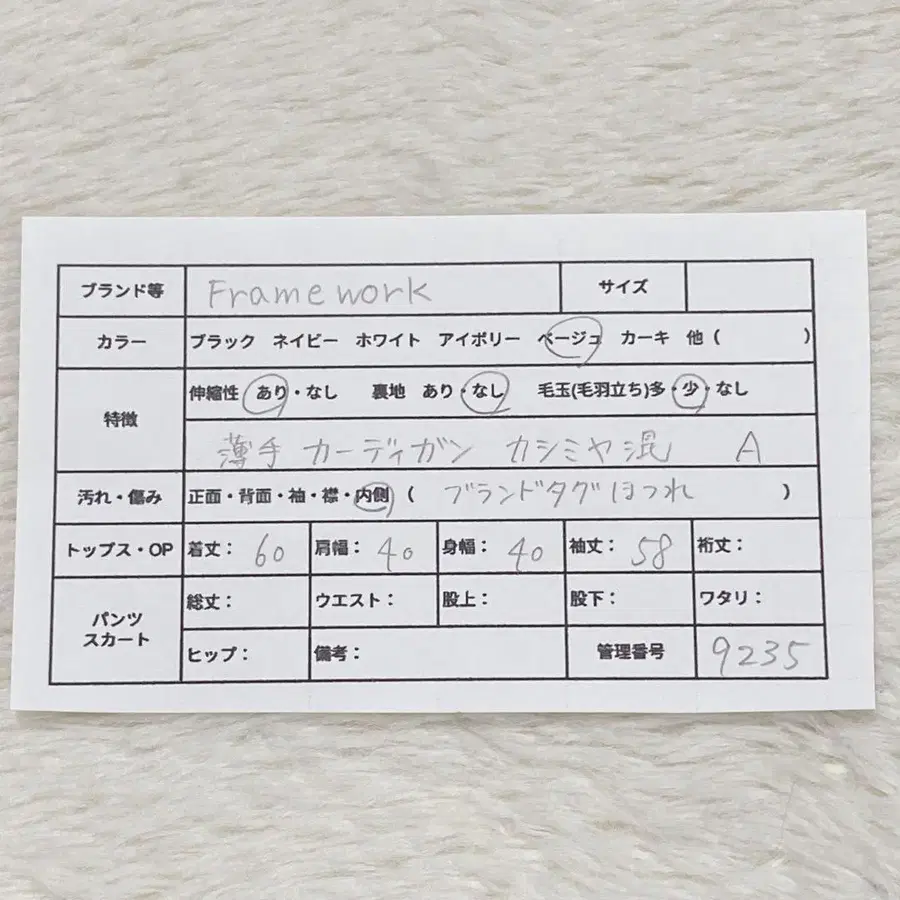 ブランド等 Framework サイズ
カラー ブラック ネイビー ホワイト アイボリー ベージュ カーキ 他( )
特徴 伸縮性 あり・なし 裏地 あり・なし 毛玉(毛羽立ち)多・少・なし
薄手 カーディガン カシミヤ混 A
汚れ・傷み 正面・背面・袖・襟・内側 ( ブランドタグほつれ )
トップス・OP 着丈: 60 肩幅: 40 身幅: 40 袖丈: 58 裄丈:
パンツ スカート 総丈: ウエスト: 股上: 股下: ワタリ:
ヒップ: 備考: 管理番号 9235